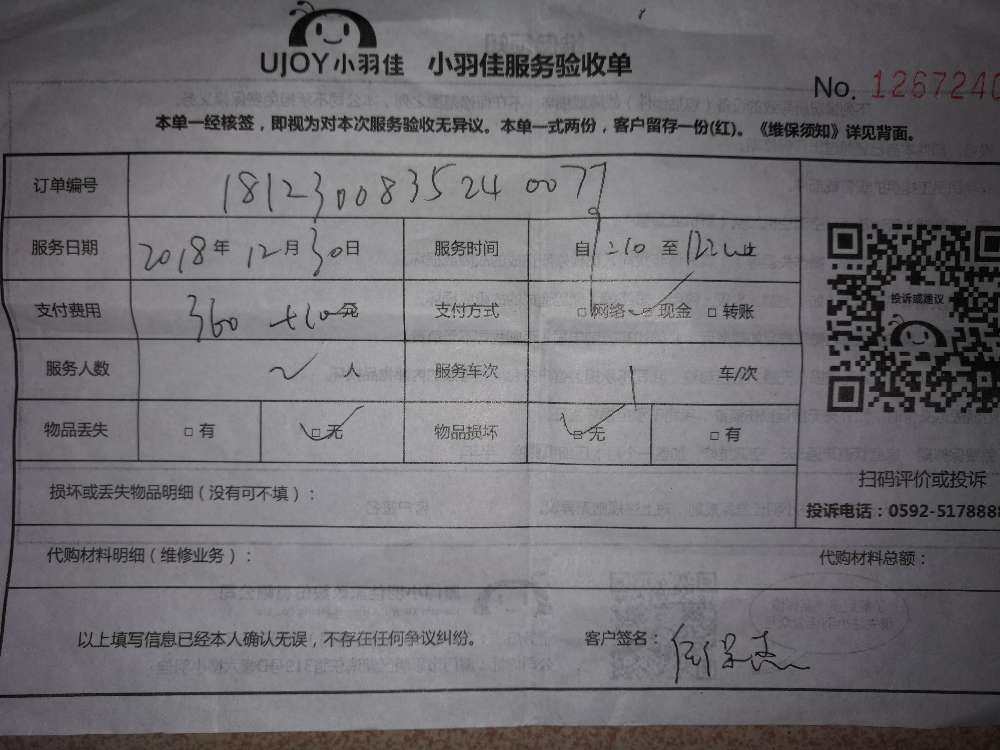 UJOY小羽佳 小羽佳服务验收单
No. 1267240
本单一经核签，即视为对本次服务验收无异议。本单一式两份，客户留存一份(红)。《维保须知》详见背面。
订单编号 181230083524 0077
服务日期 2018年12月30日 服务时间 自 至
支付费用 360 +10元 支付方式 □网络 □现金 □转账
服务人数 2 人 服务车次 车/次
物品丢失 □有 □无 物品损坏 □无 □有
投诉或建议
扫码评价或投诉
投诉电话：0592-5178888
损坏或丢失物品明细（没有可不填）：
代购材料明细（维修业务）： 代购材料总额：
以上填写信息已经本人确认无误，不存在任何争议纠纷。 客户签名：